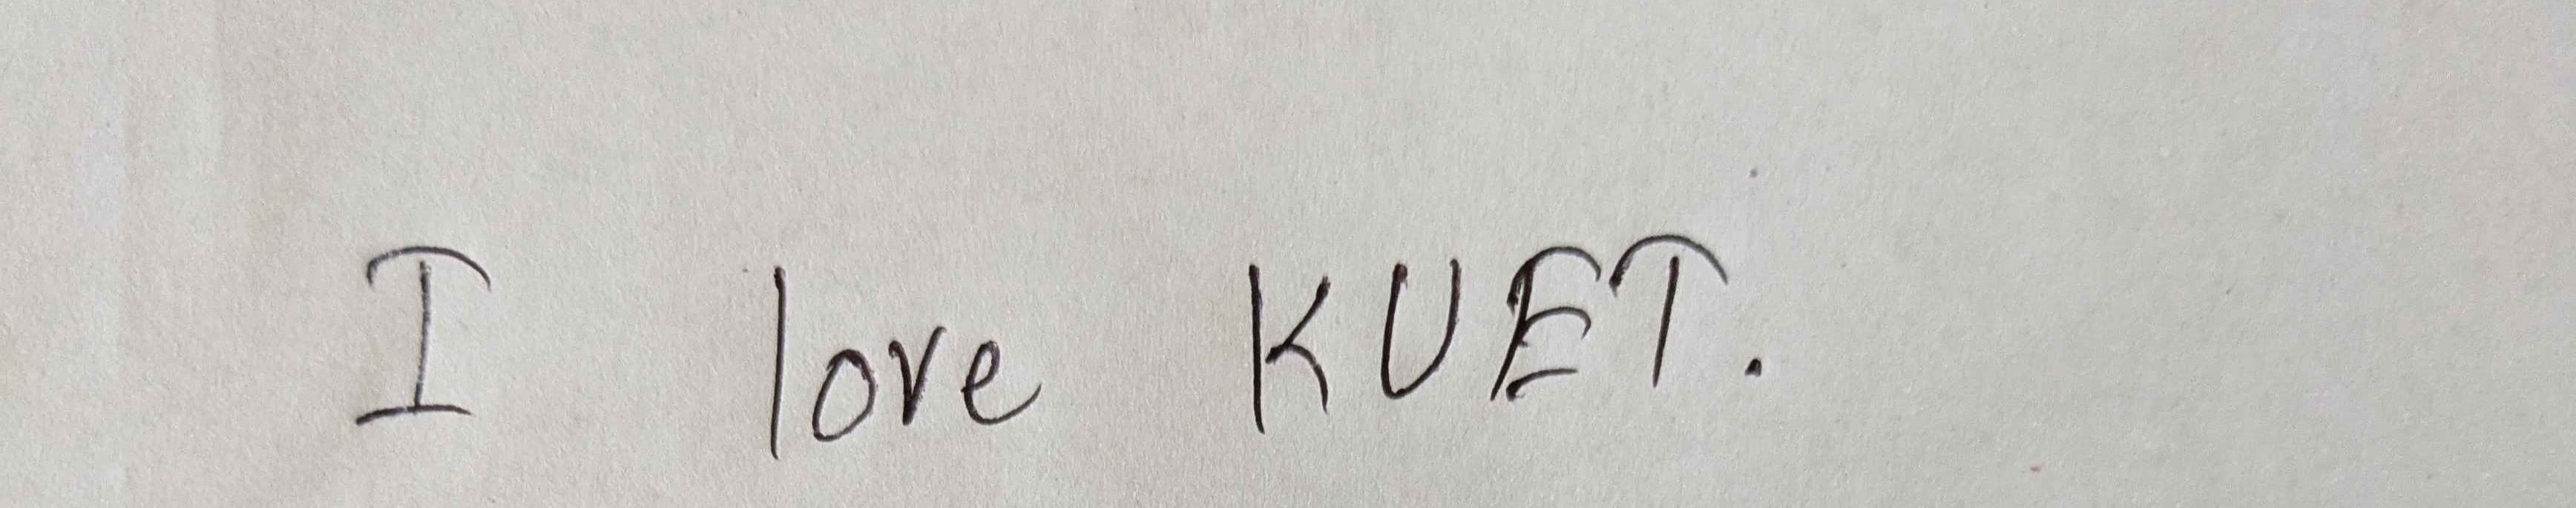 I love KUET.